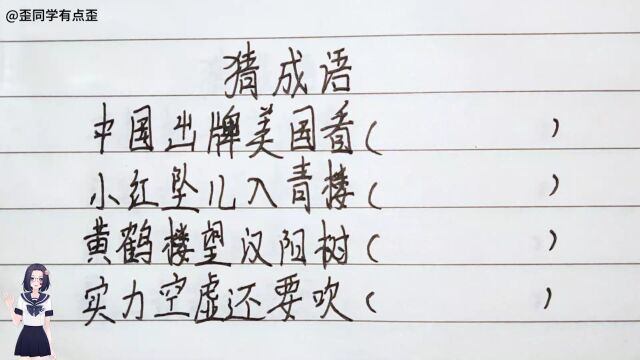 @歪同学有点歪
猜成语
中国出牌美国看( )
小红坠儿入青楼( )
黄鹤楼望汉阳树( )
实力空虚还要吹( )